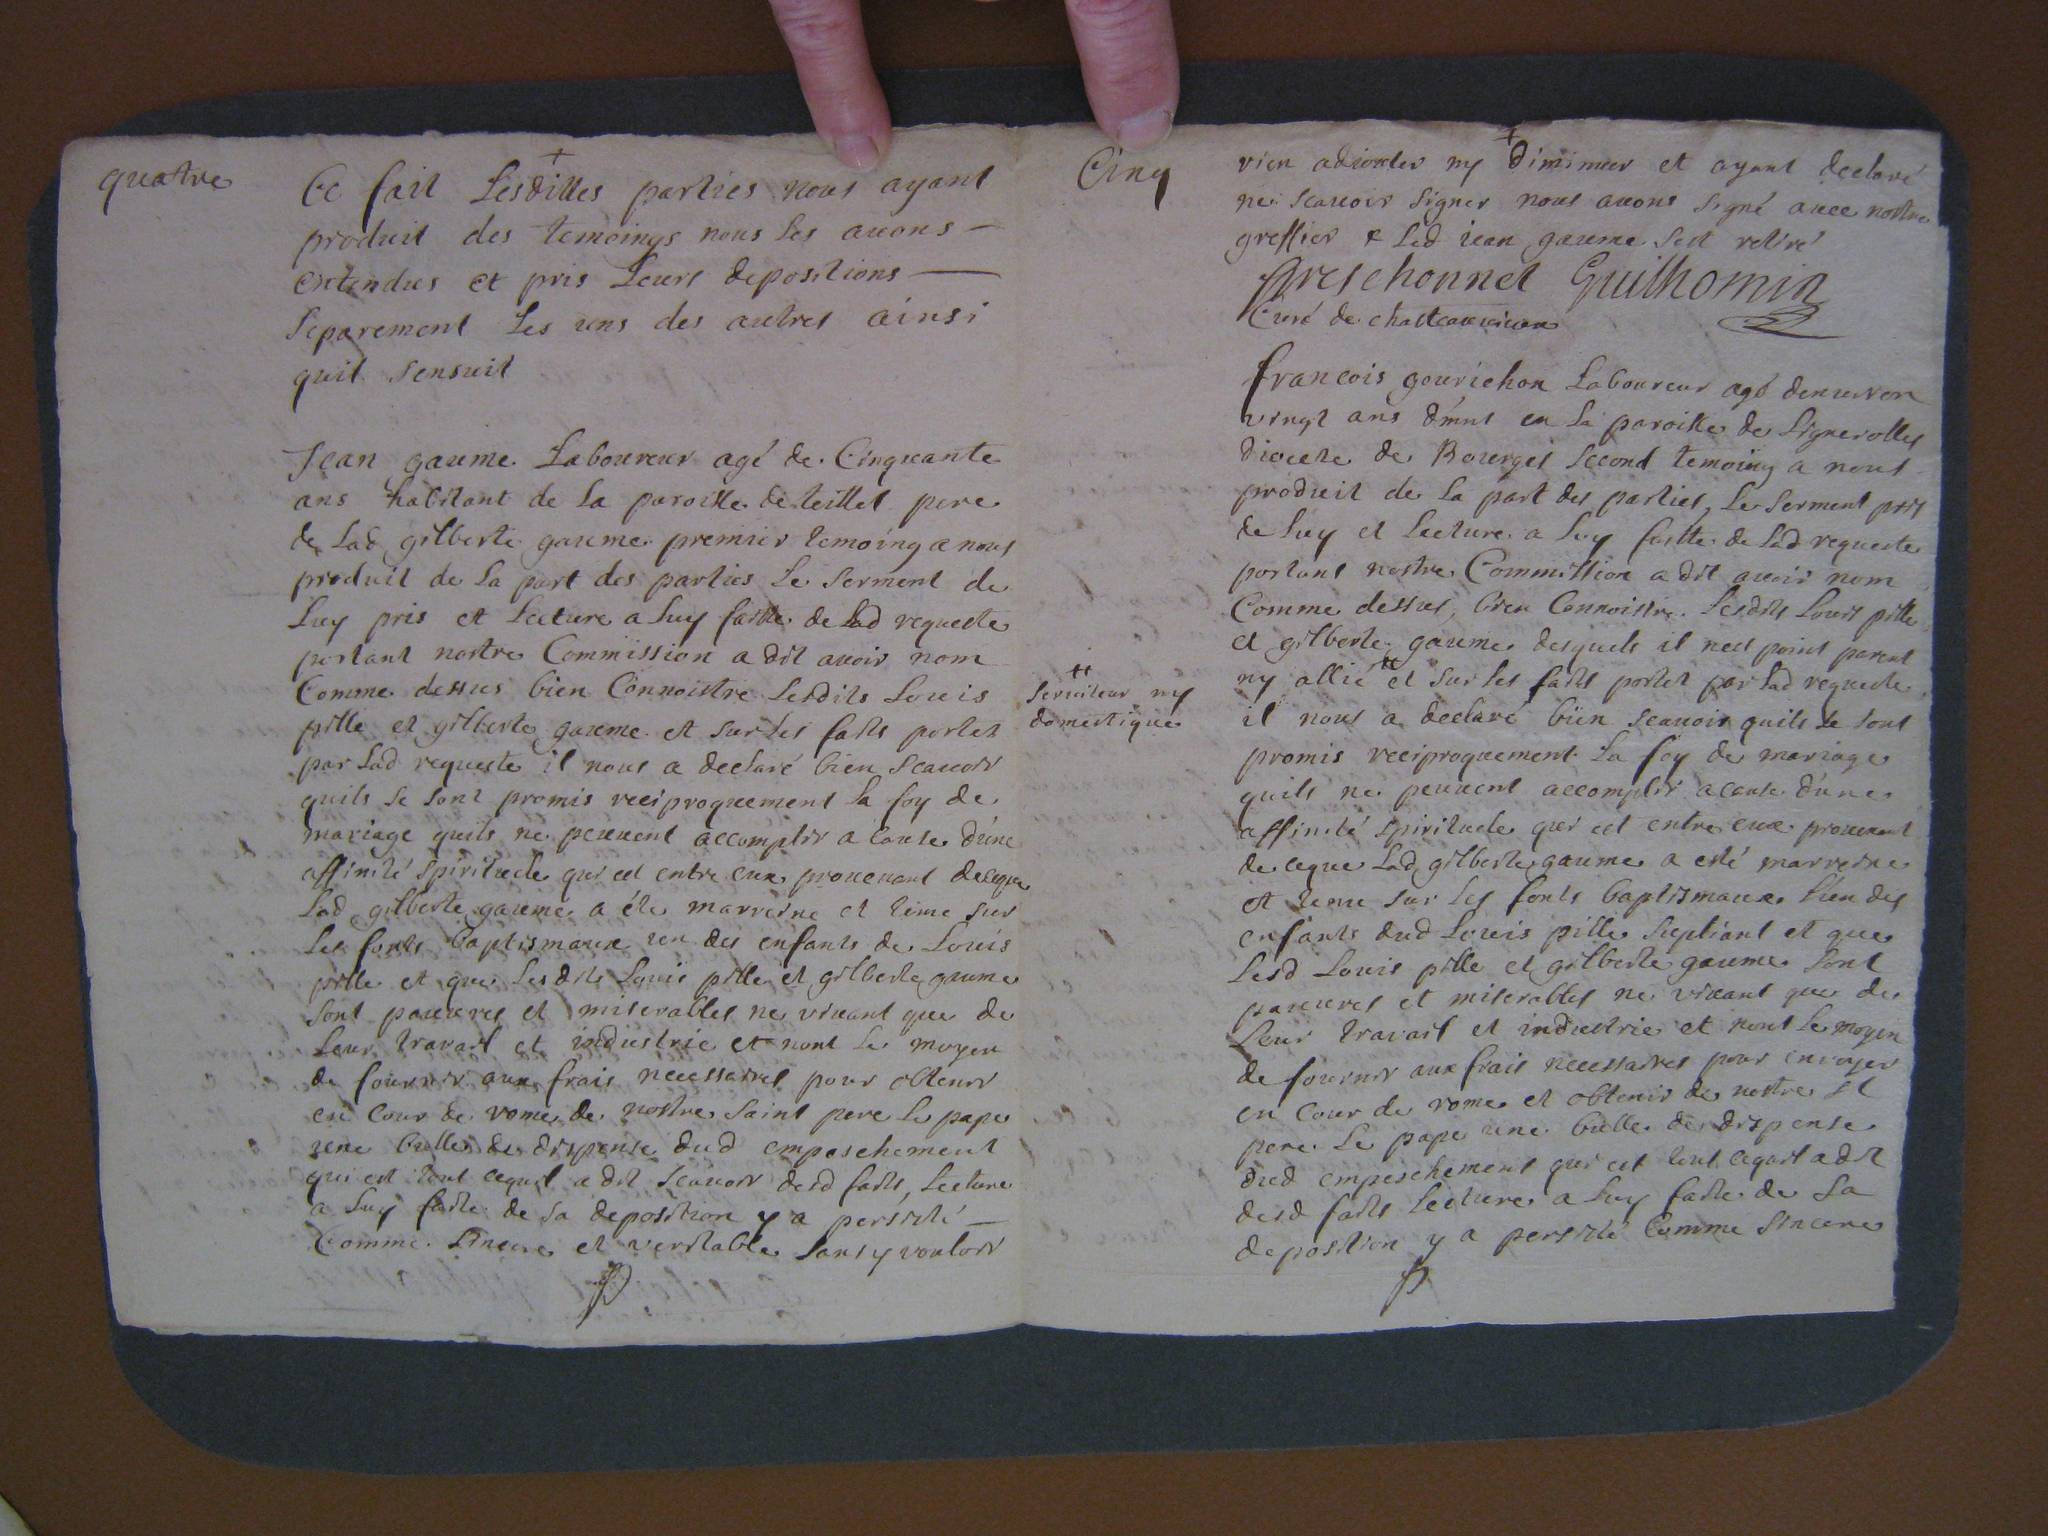 quatre
Ce fait Lesdittes parties nous ayant
produit des temoings nous les auons
entendus et pris Leurs depositions
separement Les uns des autres ainsi
quil sensuit
Jean gaume Laboureur agé de Cinquante
ans habitant de La paroisse de teillet pere
de Lad gilberte gaume premier temoing a nous
produit de La part des parties Le serment de
Luy pris et Lecture a Luy faitte de Lad requeste
portant nostre Commission a dit auoir nom
Comme dessus bien Connoistre Lesdits Louis
pille et gilberte gaume et sur Les faits portez
par Lad requeste il nous a declaré bien scauoir
quils se sont promis reciproquement La foy de
mariage quils ne peuuent accomplir a cause d'une
affinité spirituele qui est entre eux prouenant deceque
Lad gilberte gaume a éte marreine et tenu sur
Les fonts baptismaux un des enfants de Louis
pille et que Lesdits Louis pille et gilberte gaume
sont pauures et miserables ne viuant que de
Leur travail et industrie et nont Le moyen
de fournir aux frais necessaires pour obtenir
en Cour de rome de nostre saint pere Le pape
une bulle de dispense dud empeschement
qui est tout cequil a dit scauoir desd faits, Lecture
a Luy faite de sa deposition y a persisté
Comme sincere et veritable sans y vouloir
Cinq
rien adiouter ny diminuer et ayant declaré
ne scauoir signer nous auons signé auec nostre
greffier & Led iean gaume sest retiré
Guilhomin
Curé de
francois gourichon Laboureur agé denuiron
vingt ans dmnt en La paroisse de Lignerolles
diocese de Bourges second temoing a nous
produit de La part des parties, Le serment pris
de Luy et Lecture a Luy faitte de Lad requeste
portant nostre Commission a dit auoir nom
Comme dessus, bien Connoistre Lesdits Louis pille
et gilberte gaume desquels il nest point parent
ny allié # et sur Les faits portez par Lad requeste
# seruiteur ny
domestique
il nous a declaré bien scauoir quils se sont
promis reciproquement La foy de mariage
quils ne peuuent accomplir acause d'une
affinité spirituele qui est entre eux prouenant
de ceque Lad gilberte gaume a esté marreine
et tenu sur Les fonts baptismaux l'un des
enfants dud Louis pille supliant et que
Lesd Louis pille et gilberte gaume sont
pauures et miserables ne viuant que de
Leur travail et industrie et nont Le moyen
de fournir aux frais necessaires pour enuoyer
en Cour de rome et obtenir de nostre st
pere Le pape une bulle de dispense
dud empeschement qui est tout cequil a dit
desd faits Lecture a Luy faite de sa
deposition y a persisté Comme sincere